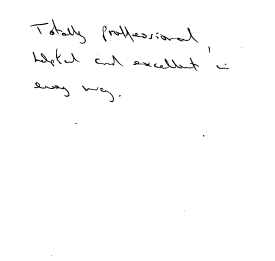 Totally proffessional,
helpful and excellent in
every way.